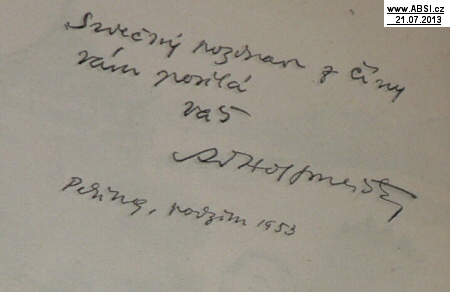 www.ABSI.cz
21.07.2013
Srdečný pozdrav z Číny
vám posílá
váš
AdHoffmeister
Peking, podzim 1953